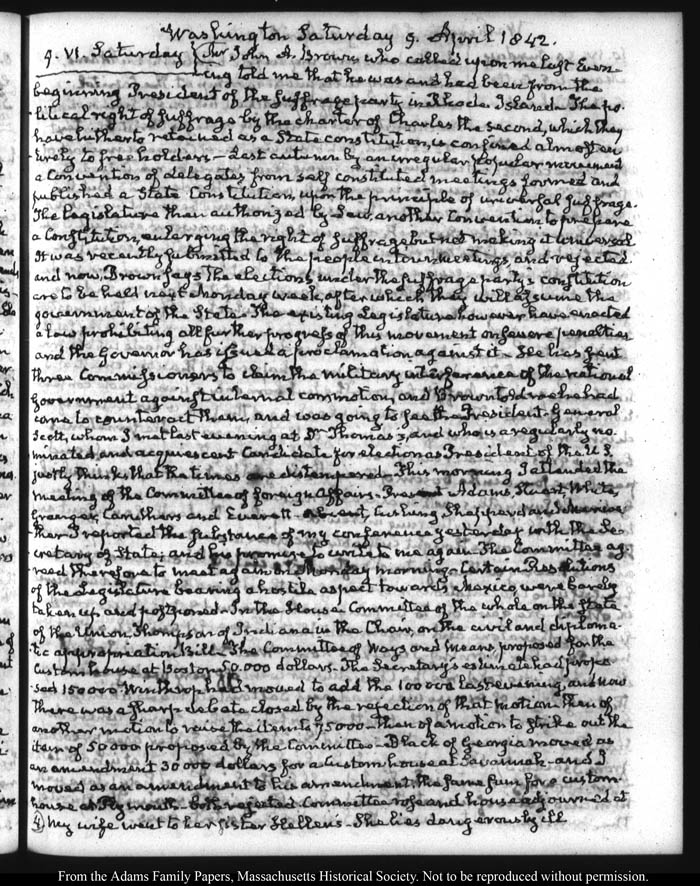 Washington Saturday 9. April 1842.
9. VI. Saturday Mr John A. Brown, who called upon me last Even-
ing told me that he was and had been from the
beginning President of the suffrage party in Rhode Island. The po-
litical right of suffrage by the charter of Charles the second, which they
have hitherto retained as a State constitution, is confined almost en-
tirely to freeholders – Last autumn by an irregular popular movement
a Convention of delegates from self constituted meetings formed and
published a State Constitution, upon the principle of universal suffrage.
The Legislature then authorized by Law, another Convention to prepare
a Constitution, enlarging the right of suffrage but not making it universal
It was recently submitted to the people in town meetings and rejected.
and now, Brown says the elections under the suffrage party's constitution
are to be held next Monday week, after which they will assume the
government of the State. The existing Legislature however have enacted
a Law prohibiting all further progress of this movement on severe penalties
and the Governor has issued a proclamation against it – He has sent
three Commissioners to claim the military interference of the national
Government against internal commotion, and Brown told me he had
come to counteract them, and was going to see the President. General
Scott, whom I met last evening at Dr Thomas's, and who is a regularly no-
minated and acquiescent Candidate for election as President of the U.S.
justly thinks that the times are distempered. This morning I attended the
meeting of the Committee of foreign Affairs. Present Adams, Stuart, White,
Granger, Caruthers and Everett – absent, Cushing, Shepperd and
I reported the substance of my conference yesterday with the Se-
cretary of State; and his promise to write to me again. The Committee ag-
reed therefore to meet again on Monday morning – Certain Resolutions
of the Legislature bearing a hostile aspect towards Mexico, were barely
taken up and postponed. In the House Committee of the whole on the State
of the Union, Thompson of Indiana in the Chair, on the civil and diploma-
tic appropriation Bill. The Committee of Ways and Means, proposed for the
Custom house at Boston 50.000 dollars. The Secretary's estimate had propo-
sed 150000. Winthrop had moved to add the 100000 last evening, and now
there was a sharp debate closed by the rejection of that motion. then of
another motion to raise the item to 75000 – then of a motion to strike out the
item of 50000 proposed by the Committee – Black of Georgia moved as
an amendment 30000 dollars for a Custom house at Savannah – and I
moved as an amendment to his amendment, the same sum for a custom-
house at Plymouth – both rejected. Committee rose and house adjourned at
4) My wife went to her sister Hellen's – She lies dangerously ill
From the Adams Family Papers, Massachusetts Historical Society. Not to be reproduced without permission.